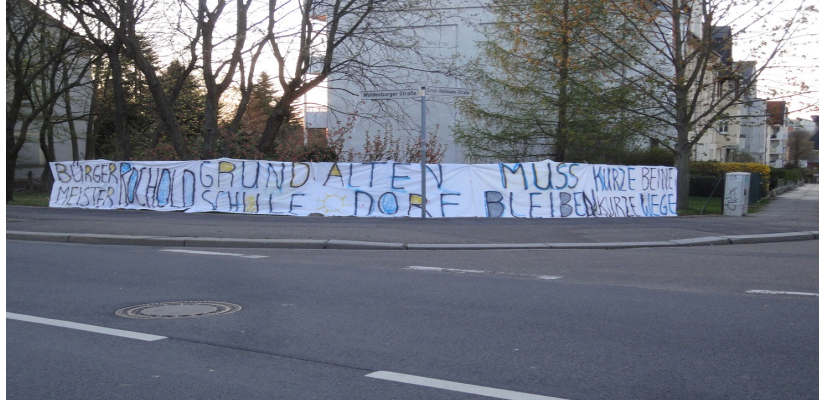 Waldenburger Straße
BÜRGER MEISTER ROCHOLD GRUND SCHULE ALTEN DORF MUSS BLEIBEN KURZE BEINE KURZE WEGE